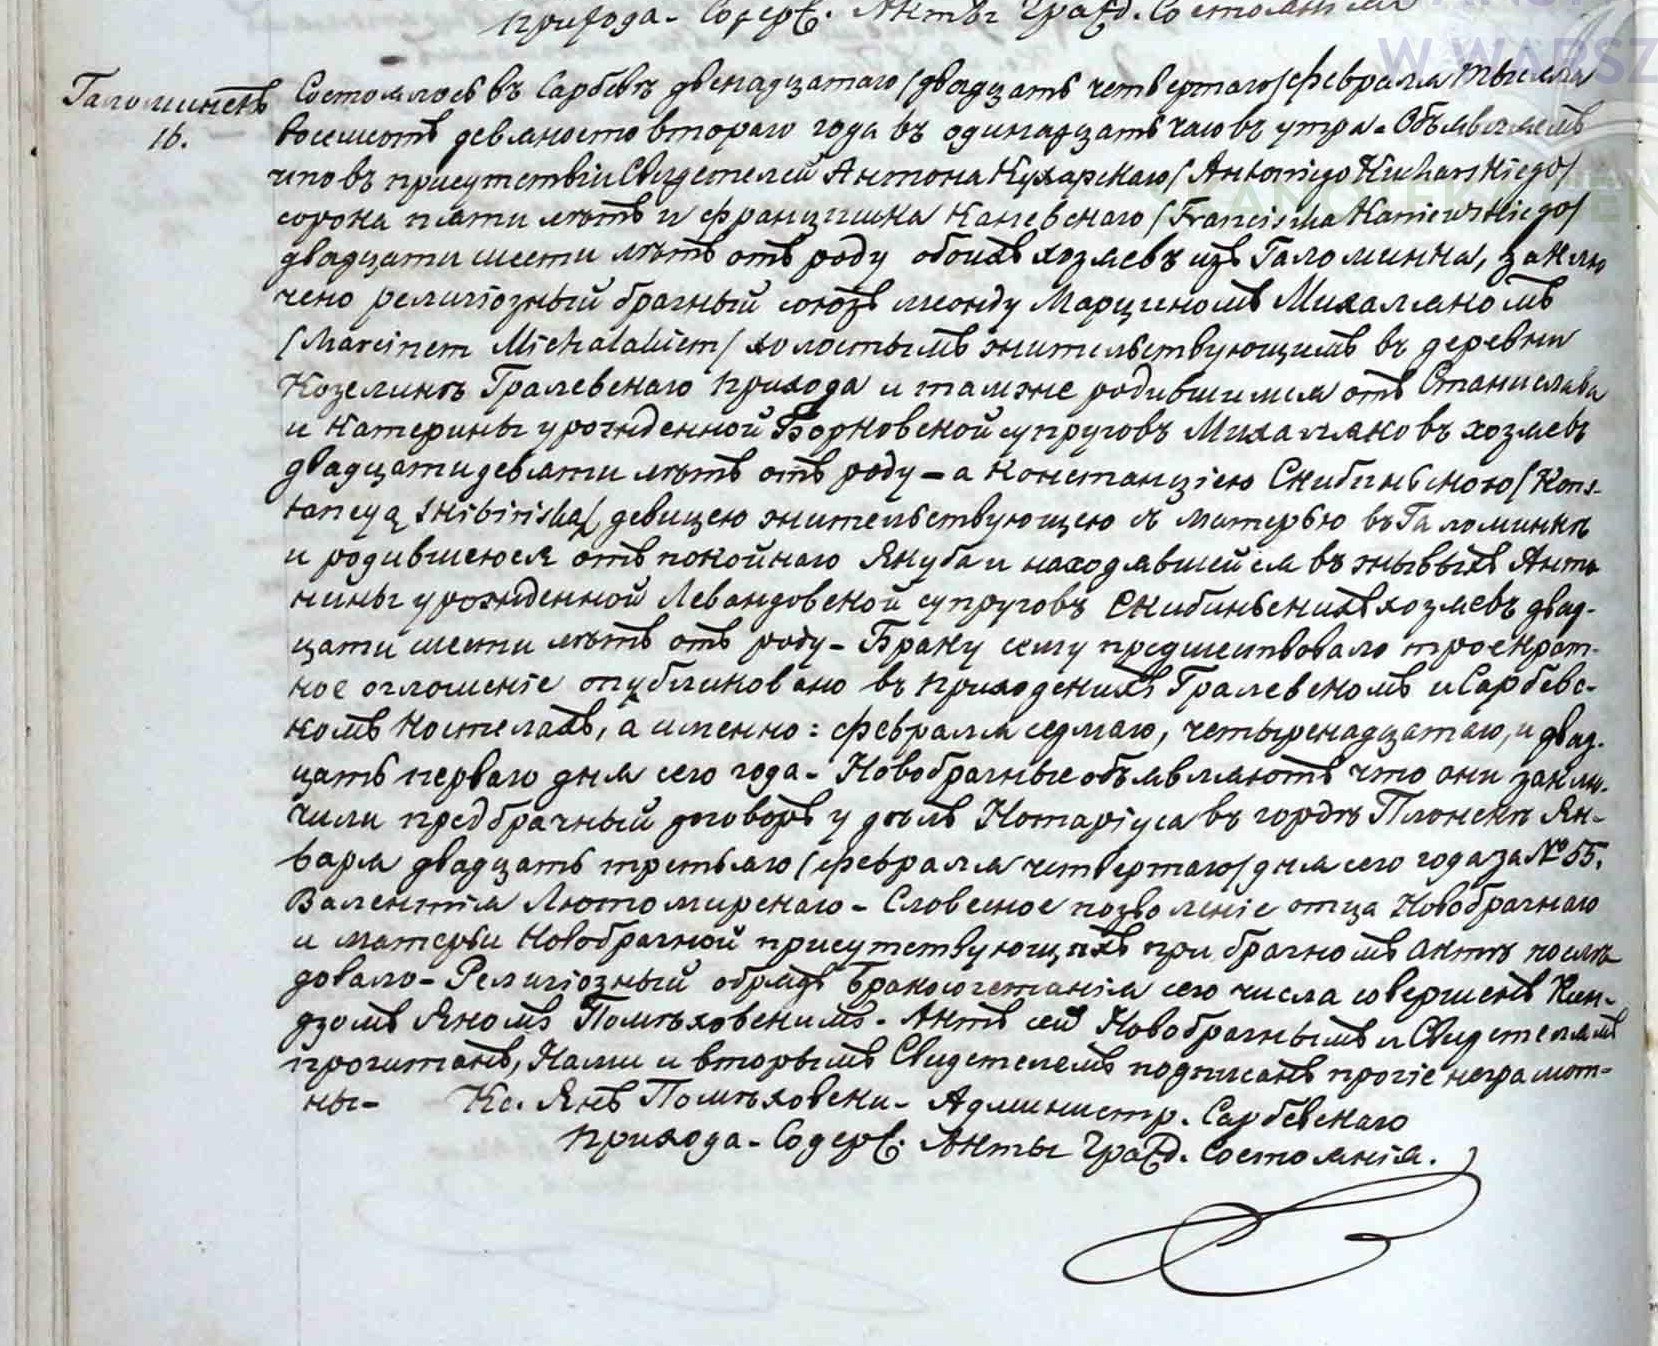 прихода - Содерж. Акты Гражд. Состоянія
W WARSZ
Галоминекъ
16.
Состоялось въ Сарбевѣ двенадзатаго /двадзать четвертаго/ февраля тысяча
восемсотъ девяносто втораго года въ одинадзать часовъ утра - Объявляемъ
что въ присутствіи Свидетелей Антона Кухарскаго /Antoniego Kucharskiego/
сорока пяти лѣтъ и францишка Каневскаго /Franciszka Kaniewskiego/
двадцати шести лѣтъ отъ роду обоихъ хозяевъ изъ Галоминка, заклю
чено религіозный брачный союзъ между Марциномъ Михаляномъ
/Marcinem Michalakiem/ холостымъ жительствующимъ въ деревни
Козелинкѣ Гралевскаго прихода и тамже родившимся отъ Станислава
и Катерины урожденной Борковской супруговъ Михаляковъ хозяевъ
двадцати девяти лѣтъ отъ роду - а Констанціею Скибиньскою /Kons-
tancyą Skibińską/ девицею жительствующею съ матерью въ Галоминкѣ
и родившеюся отъ покойнаго Якуба и находявшейся въ живыхъ Анто
нины урожденной Левандовской супруговъ Скибиньскихъ хозяевъ двад-
цати шести лѣтъ отъ роду - Браку сему предшествовало троекрат-
ное оглошеніе опубликовано въ приходскихъ Гралевскомъ и Сарбевс-
комъ костелахъ, а именно: февраля седмаго, четыренадзатаго, и двад-
цать перваго дня сего года - Новобрачные объявляютъ что они заклю-
чили предбрачный договоръ у дѣлъ Нотаріуса въ городѣ Плонскѣ Ян-
варя двадцать третьяго /февраля четвертаго/ дня сего года за № 55.
Валентія Лютомирскаго - Словесное позволеніе отца Новобрачнаго
и матерьи Новобрачной присутствующихъ при брачномъ актѣ послѣ
довало - Религіозный обрядъ бракосочетанія сего числа совершенъ Ксен-
дзомъ Яномъ Помѣховскимъ - Актъ сей Новобрачнымъ и Свидетелямъ
прочитанъ, Нами и вторымъ Свидетелемъ подписанъ прочіе неграмот-
ны - Кс. Янъ Помѣховски - Администр. Сарбевскаго
прихода - Содерж. Акты Гражд. Состоянія.